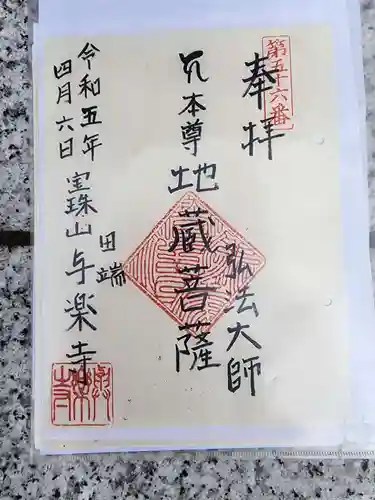 第五十六番
奉拝
弘法大師
本尊地蔵菩薩
田端
宝珠山与楽寺
令和五年
四月六日